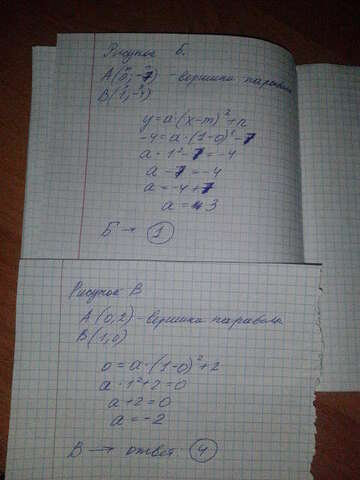 Рисунок Б.
A(0;-7) - вершина параболы
B(1;-4)
y=a·(x-m)²+n
-4=a·(1-0)²-7
a·1²-7=-4
a-7=-4
a=-4+7
a=3
Б → 1
Рисунок В
A(0,2) - вершина параболы
B(1,0)
0=a·(1-0)²+2
a·1²+2=0
a+2=0
a=-2
В → ответ 4